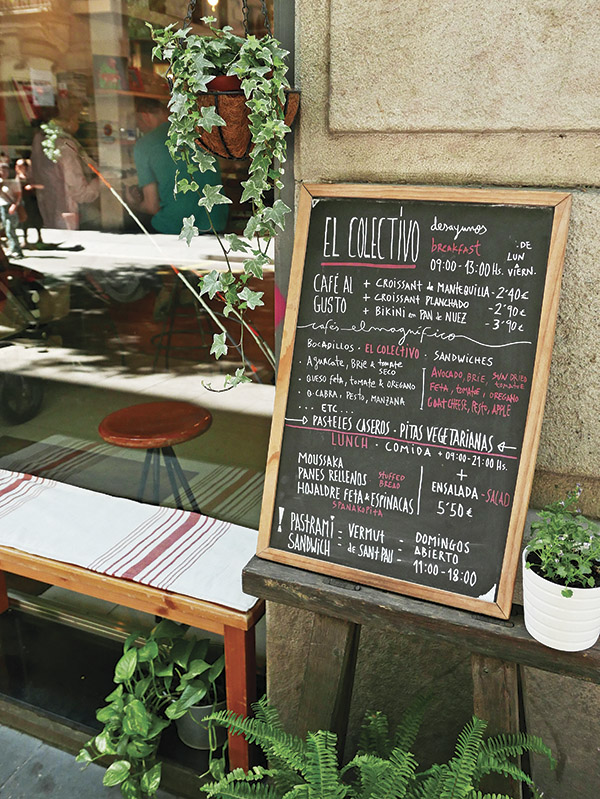 EL COLECTIVO
desayunos
breakfast
09:00-13:00 Hs.
DE
LUN
VIERN.
CAFÉ AL GUSTO
+ CROISSANT de MANTEQUILLA - 2'40€
+ CROISSANT PLANCHADO - 2'90€
+ BIKINI en PAN de NUEZ - 3'90€
cafés elmagnífico
BOCADILLOS · EL COLECTIVO · SANDWICHES
· Aguacate, BRIE & tomate seco
· QUESO feta, tomate & OREGANO
· Q-CABRA, PESTO, MANZANA
... ETC...
AVOCADO, BRIE, SUN DRIED tomatoe
FETA, tomatoe, OREGANO
GOAT CHEESE, PESTO, APPLE
PASTELES CASEROS · PITAS VEGETARIANAS
LUNCH · COMIDA + 09:00-21:00 Hs.
MOUSSAKA
PANES RELLENOS STUFFED BREAD
HOJALDRE FETA & ESPINACAS
SPANAKOPITA
+
ENSALADA - SALAD
5'50€
! PASTRAMI SANDWICH
= VERMUT =
- de SANT PAU =
DOMINGOS
ABIERTO
11:00-18:00